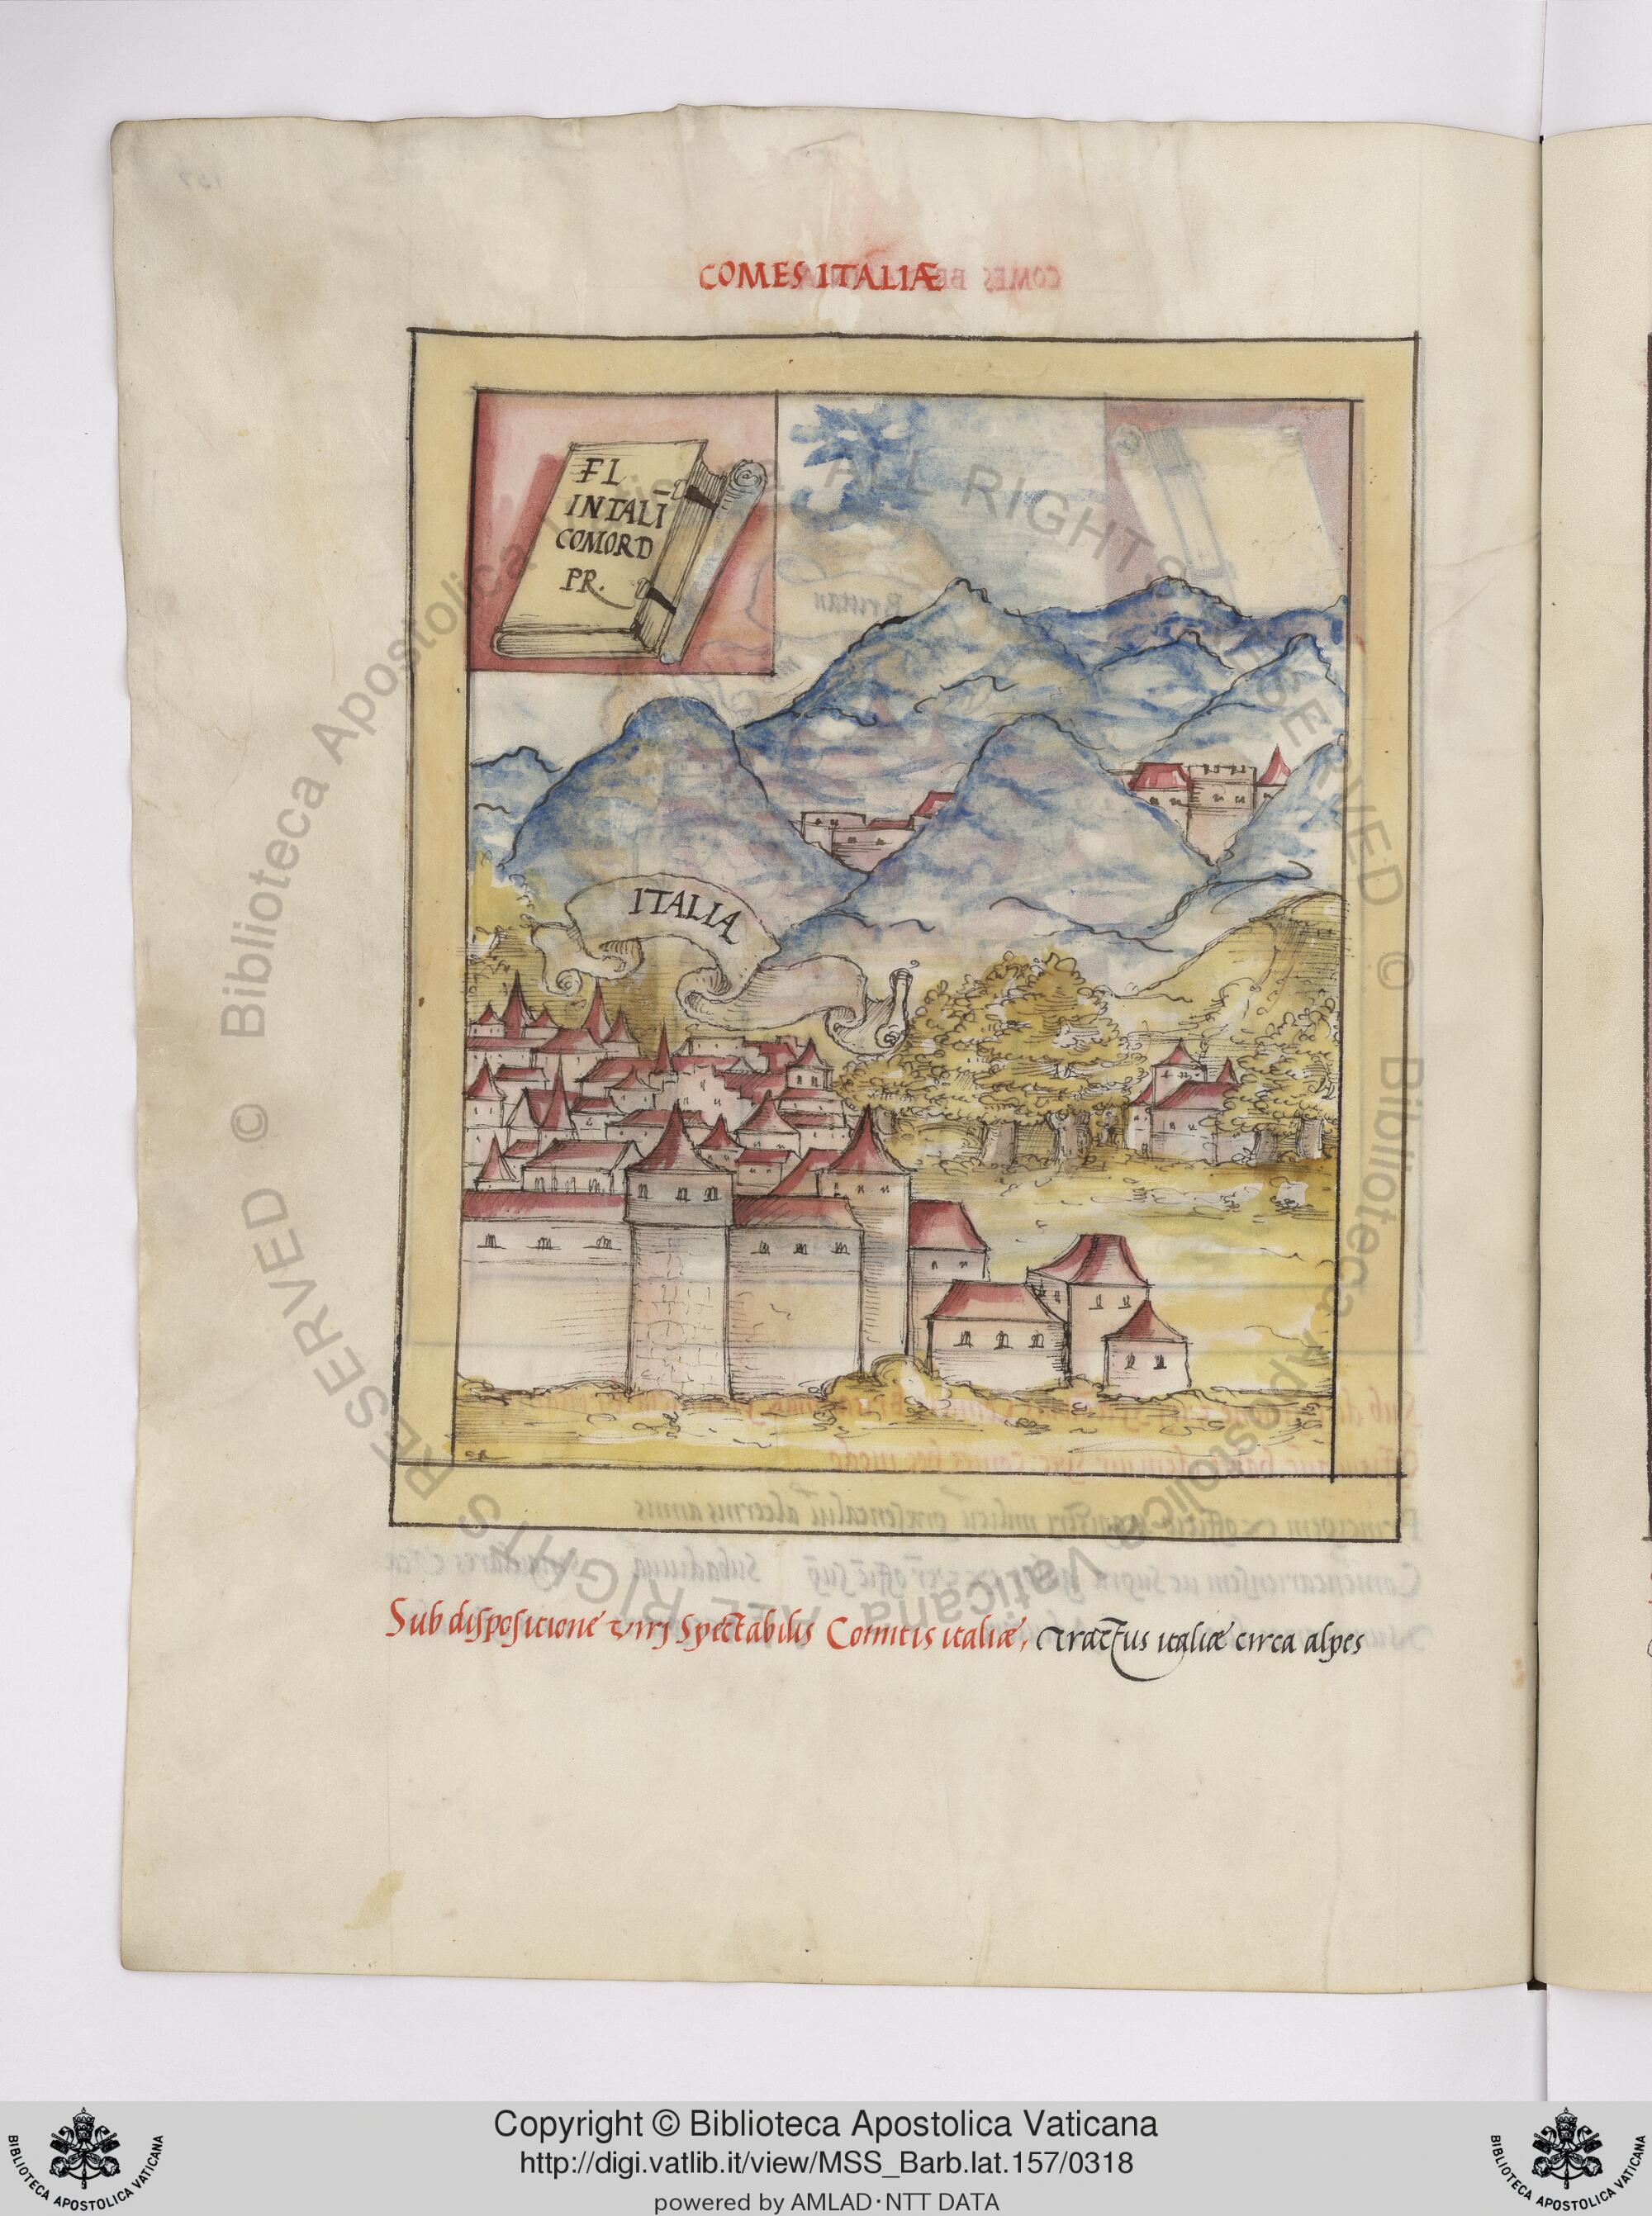 COMES ITALIÆ
FL
INTALĪ
COMORD
PR.
ITALIA
Sub dispositione viri Spectabilis Comitis italiæ, tractus italiæ circa alpes
Copyright © Biblioteca Apostolica Vaticana
http://digi.vatlib.it/view/MSS_Barb.lat.157/0318
powered by AMLAD·NTT DATA
BIBLIOTECA APOSTOLICA VATICANA
BIBLIOTECA APOSTOLICA VATICANA
© Biblioteca Apostolica Vaticana ALL RIGHTS RESERVED © Biblioteca Apostolica Vaticana ALL RIGHTS RESERVED